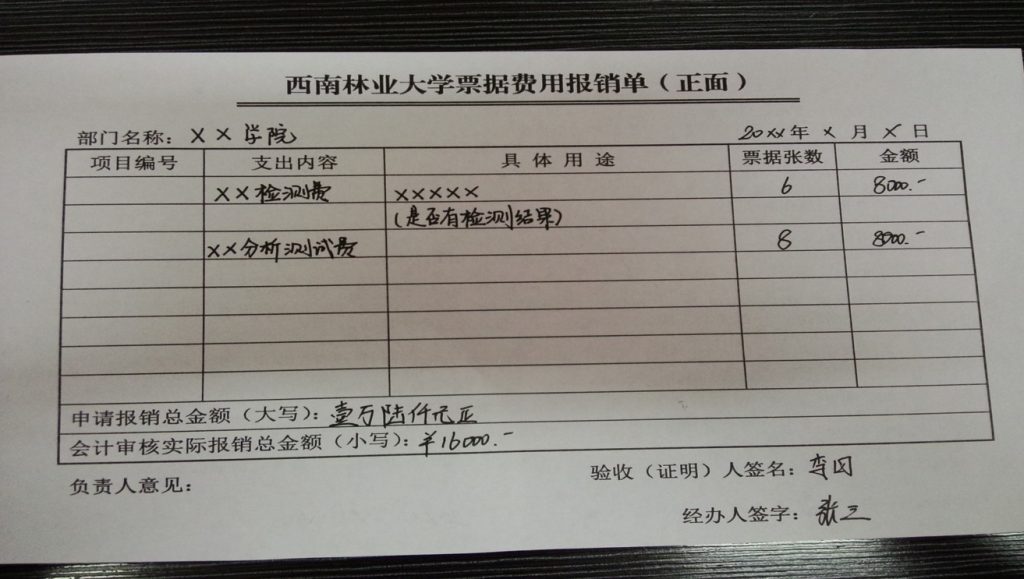 西南林业大学票据费用报销单（正面）
部门名称：××学院 20××年 × 月 × 日
项目编号 支出内容 具体用途 票据张数 金额
××检测费 ××××× 6 8000.-
(是否有检测结果)
××分析测试费 8 8000.-
申请报销总金额（大写）：壹万陆仟元正
会计审核实际报销总金额（小写）：¥16000.-
负责人意见： 验收（证明）人签名：李四
经办人签字：张三